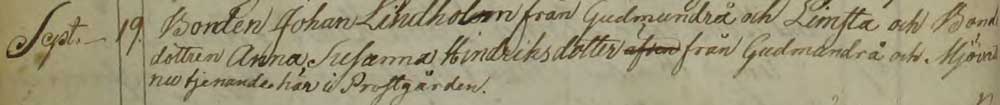 Sept. 19. Bonden Johan Lindholm från Gudmundrå och Limsta och Bond
dottren Anna Susanna Hindriksdotter från Gudmundrå och
nu tjenande här i Prostgården.